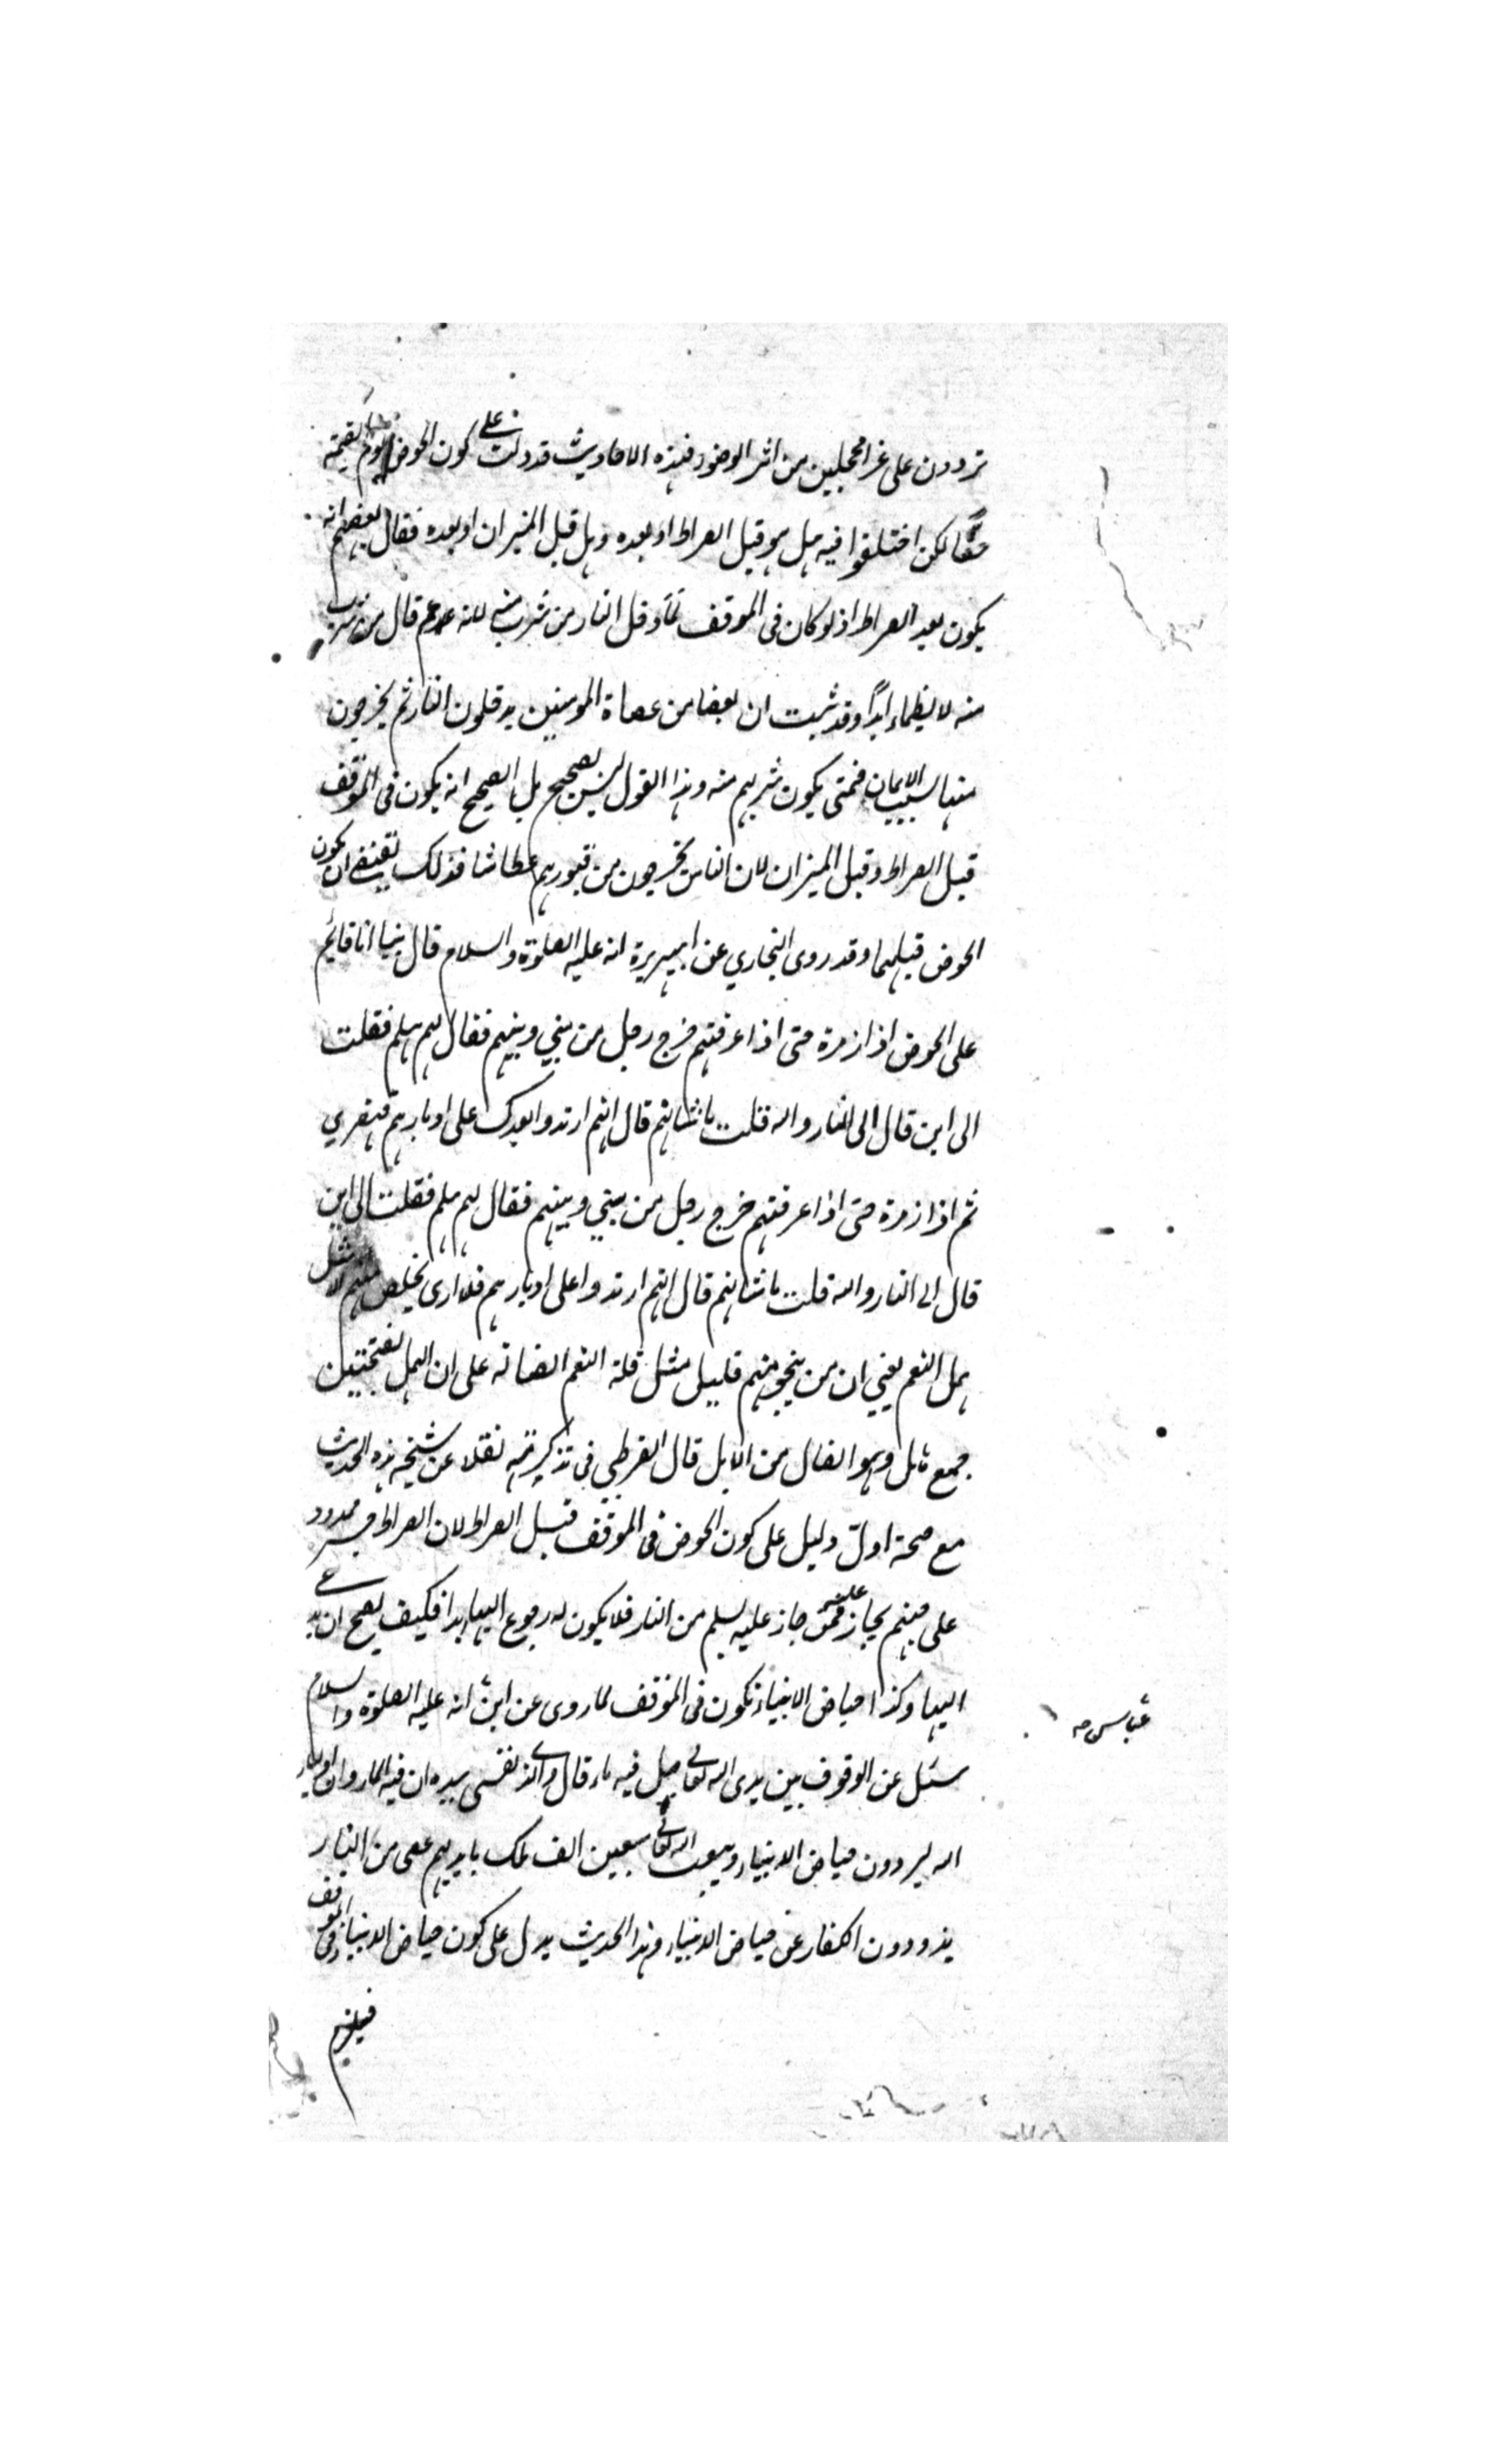 تردون على غرا محجلين من اثر الوضوء فهذه الاحاديث قد دلت على كون الحوض يوم القيمة
حقا لكن اختلفوا فيه هل هو قبل الصراط او بعده وهل قبل الميزان او بعده فقال بعضهم انه
يكون بعد الصراط اذ لو كان فى الموقف لما دخل النار من شرب منه لانه عم قال من شرب
منه لا يظماء ابدًا وقد ثبت ان بعضا من عصاة المومنين يدخلون النار ثم يخرجون
منها بسبب الايمان فمتى يكون شربهم منه وهذا القول ليس بصحيح بل الصحيح انه يكون فى الموقف
قبل الصراط وقبل الميزان لان الناس يخرجون من قبورهم عطاشا فذلك يقتضى ان يكون
الحوض قبلهما وقد روى البخاري عن ابيهريرة انه عليه الصلوة والسلام قال بينا انا قائم
على الحوض اذا زمرة حتى اذا عرفتهم خرج رجل من بيني وبينهم فقال لهم هلم فقلت
الى اين قال الى النار والله قلت ما شانهم قال انهم ارتدوا بعدك على ادبارهم قهقري
ثم اذا زمرة حتى اذا عرفتهم خرج رجل من بيني وبينهم فقال لهم هلم فقلت الى اين
قال الى النار والله قلت ما شانهم قال انهم ارتدوا على ادبارهم فلا ارى يخلص منهم الا مثل
همل النعم يعني ان من ينجو منهم قليل مثل قلة النعم الضالة على ان الهمل بفتحتين
جمع هامل وهو الضال من الابل قال القرطبي في تذكيرته نقلا عن شيخه هذه الحديث
مع صحة ادلّ دليل على كون الحوض فى الموقف قبل الصراط لان الصراط جسر ممدود
على جهنم يجاز عليه فمن جاز عليه يسلم من النار فلا يكون له رجوع اليها ابدا فكيف يصح ان
اليها وكذا حياض الانبياء تكون فى الموقف لما روى عن ابن انه عليه الصلوة والسلام
عباس
سئل عن الوقوف بين يدى الله تعالى هل فيه ماء قال والذى نفسى بيده ان فيه الماء وان اولياء
الله ليردون حياض الانبياء ويبعث الله تعالى سبعين الف ملك بايديهم عصى من النار
يذودون الكفار عن حياض الانبياء وهذا الحديث يدل على كون حياض الانبياء فى الموقف
فيلزم